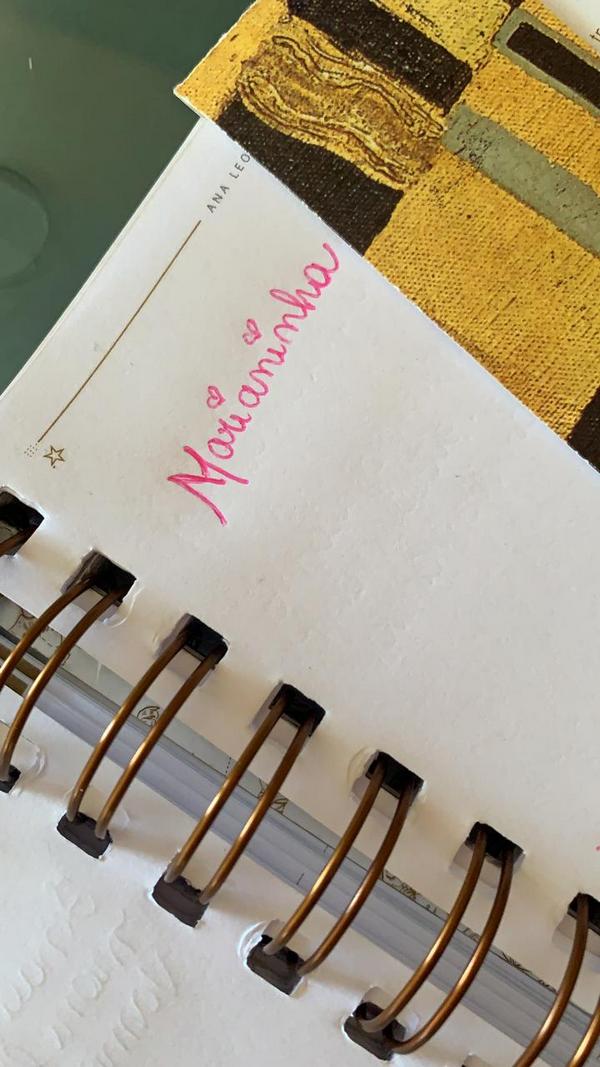 ANA LEO
Marianinha